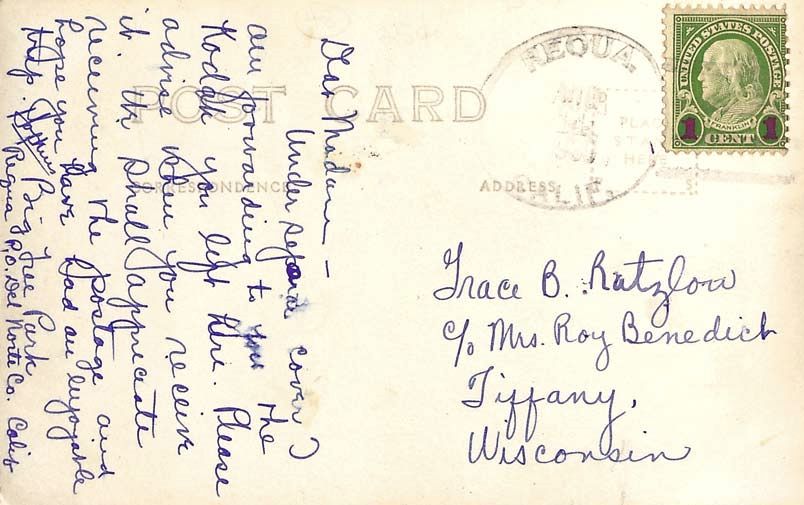 POST CARD
CORRESPONDENCE
ADDRESS
PLACE
STAMP
HERE
REQUA.
CALIF.
UNITED STATES POSTAGE
FRANKLIN
1 CENT 1
Dear Madam —
Under separate cover I
am forwarding to you the
Kodak you left here. Please
advise when you receive
it. We shall appreciate
receiving the postage and
hope you have had an enjoyable
trip.
Big Tree Park
Requa P.O. Del Norte Co. Calif
Grace B. Ratzlow
c/o Mrs. Roy Benedict
Tiffany,
Wisconsin